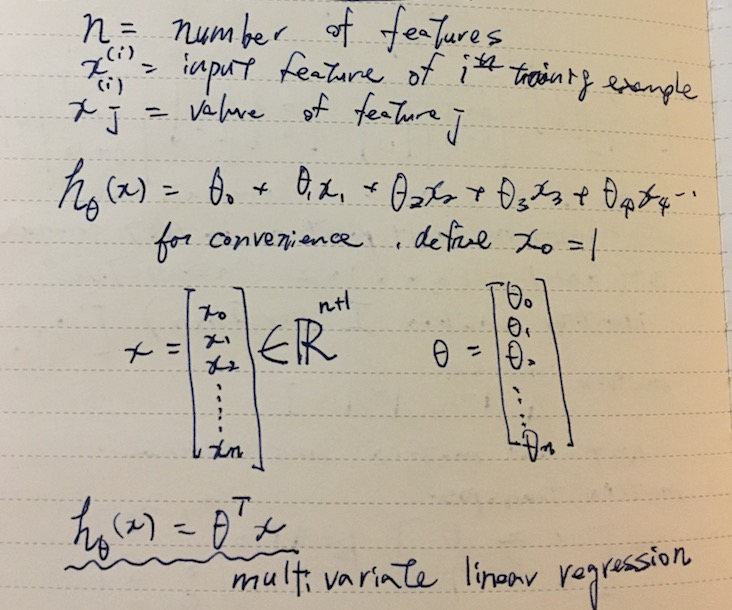 n = number of features
x^(i) = input feature of i^th training example
x_j^(i) = value of feature j
h_θ(x) = θ₀ + θ₁x₁ + θ₂x₂ + θ₃x₃ + θ₄x₄ ...
for convenience, define x₀ = 1
x = [x₀ x₁ x₂ ⋮ xₙ] ∈ ℝ^(n+1)  θ = [θ₀ θ₁ θ₂ ⋮ θₙ]
h_θ(x) = θ^T x
multivariate linear regression